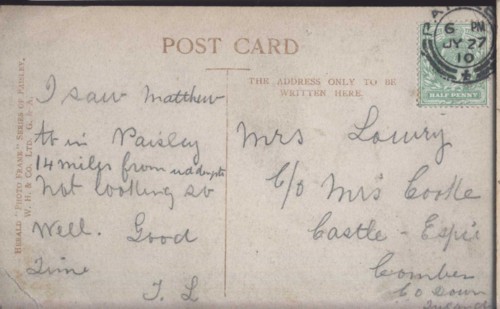 POST CARD
THE ADDRESS ONLY TO BE
WRITTEN HERE.
HERALD "PHOTO FRAME" SERIES OF PAISLEY.
W. H. & CO. LTD. G. & A.
PAISLEY
6 PM
JY 27
10
HALFPENNY
I saw Matthew
in Paisley
14 miles from
Not looking so
Well. Good
Time
J. L
Mrs Lowry
C/o Mrs Cooke
Castle - Espie
Comber
Co Down
Ireland